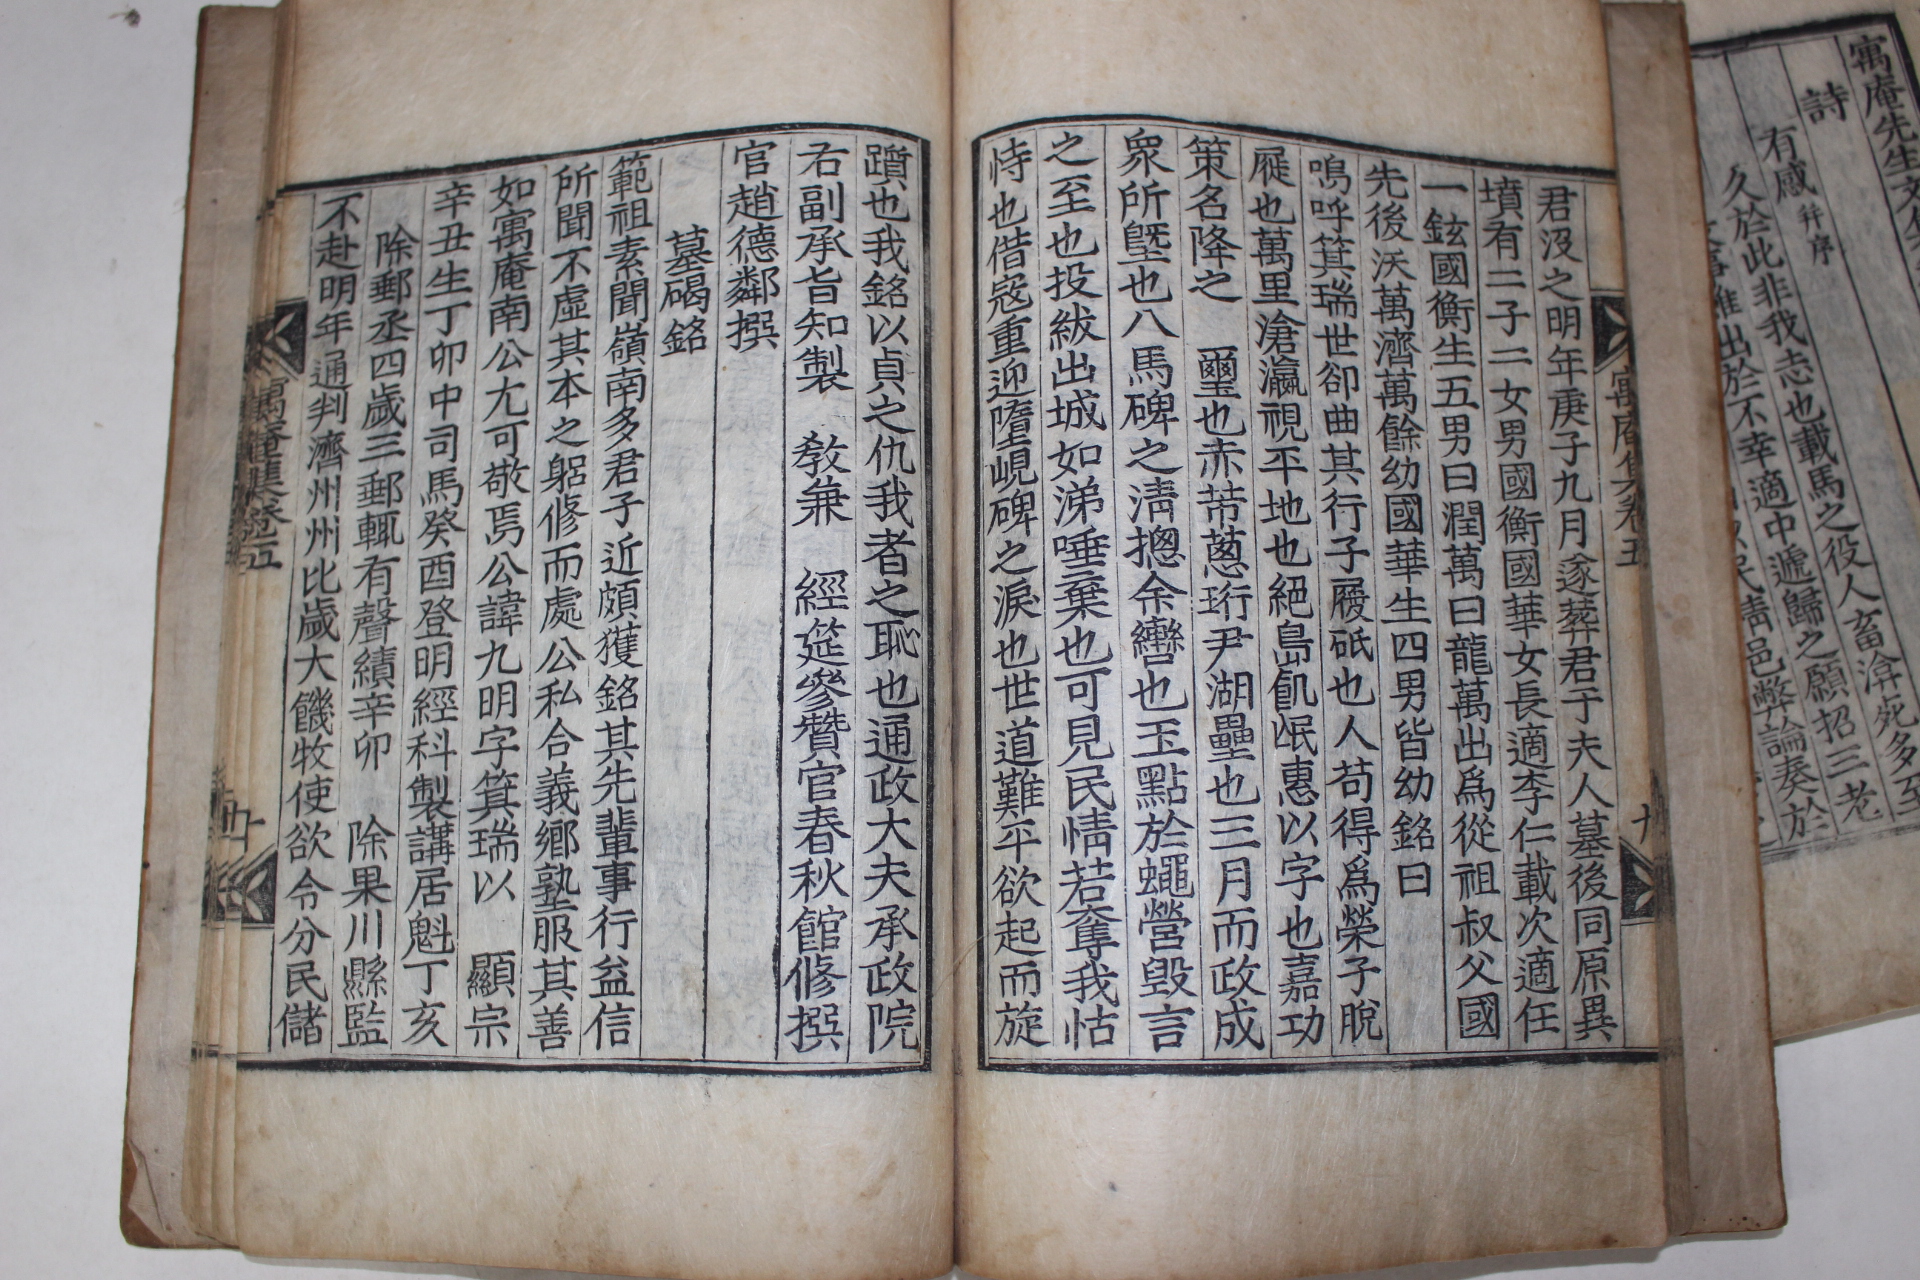 君沒之明年庚子九月遂葬君于夫人墓後同原異
墳有二子二女男國衡國華女長適李仁載次適任
一鉉國衡生五男曰潤萬曰龍萬出爲從祖叔父國
先後沃萬濟萬餘幼國華生四男皆幼銘曰
鳴呼箕瑞世卻曲其行子履砥也人苟得爲榮子脫
屣也萬里滄瀛視平地也絕島飢氓惠以字也嘉功
策名降之 璽也赤芾蔥珩尹湖壘也三月而政成
衆所曁也八馬碑之淸摠余轡也玉點於蠅營毁言
之至也投紱出城如涕唾棄也可見民情若奪我怙
恃也借寇重迎墮峴碑之淚也世道難平欲起而旋
躓也我銘以貞之仇我者之恥也通政大夫承政院
右副承旨知製 敎兼 經筵參贊官春秋館修撰
官趙德鄰撰
墓碣銘
範祖素聞嶺南多君子近頗獲銘其先輩事行益信
所聞不虛其本之躬修而處公私合義鄕塾服其善
如寓庵南公尤可敬焉公諱九明字箕瑞以 顯宗
辛丑生丁卯中司馬癸酉登明經科製講居魁丁亥
除郵丞四歲三郵輒有聲績辛卯 除果川縣監
不赴明年通判濟州州比歲大饑牧使欲令分民儲
寓庵集卷之五
寓庵先生文集
詩
有感 幷序
久於此非我志也載馬之役人畜渰死多至
出於不幸適中遞歸之願招三老
民情邑弊論奏於